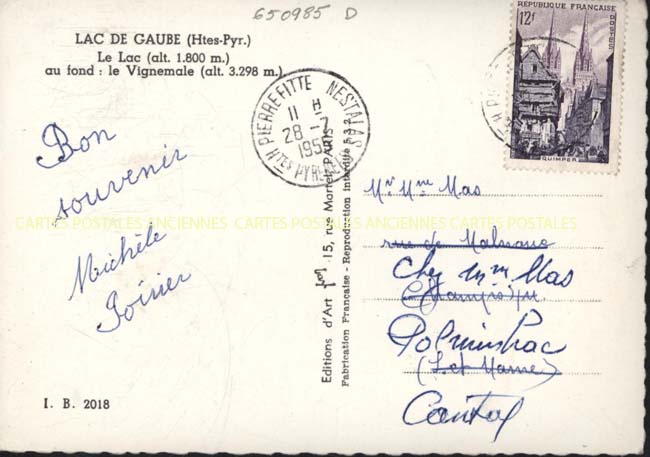 650985 D
LAC DE GAUBE (Htes-Pyr.)
Le Lac (alt. 1.800 m.)
au fond : le Vignemale (alt. 3.298 m.)
Bon
souvenir
Michèle
Poirier
I. B. 2018
PIERREFITTE NESTALAS
11 H
28 - 7
Htes PYRENEES
Editions d'Art 15, rue Martel, PARIS
Fabrication Française - Reproduction Interdite
RÉPUBLIQUE FRANÇAISE
12f
POSTES
QUIMPER
Mr Mme Mas
rue de
Chez Mme Mas
Polminhac
(S. et Marne)
Cantal
CARTES POSTALES ANCIENNES CARTES POSTALES ANCIENNES CARTES POSTALES